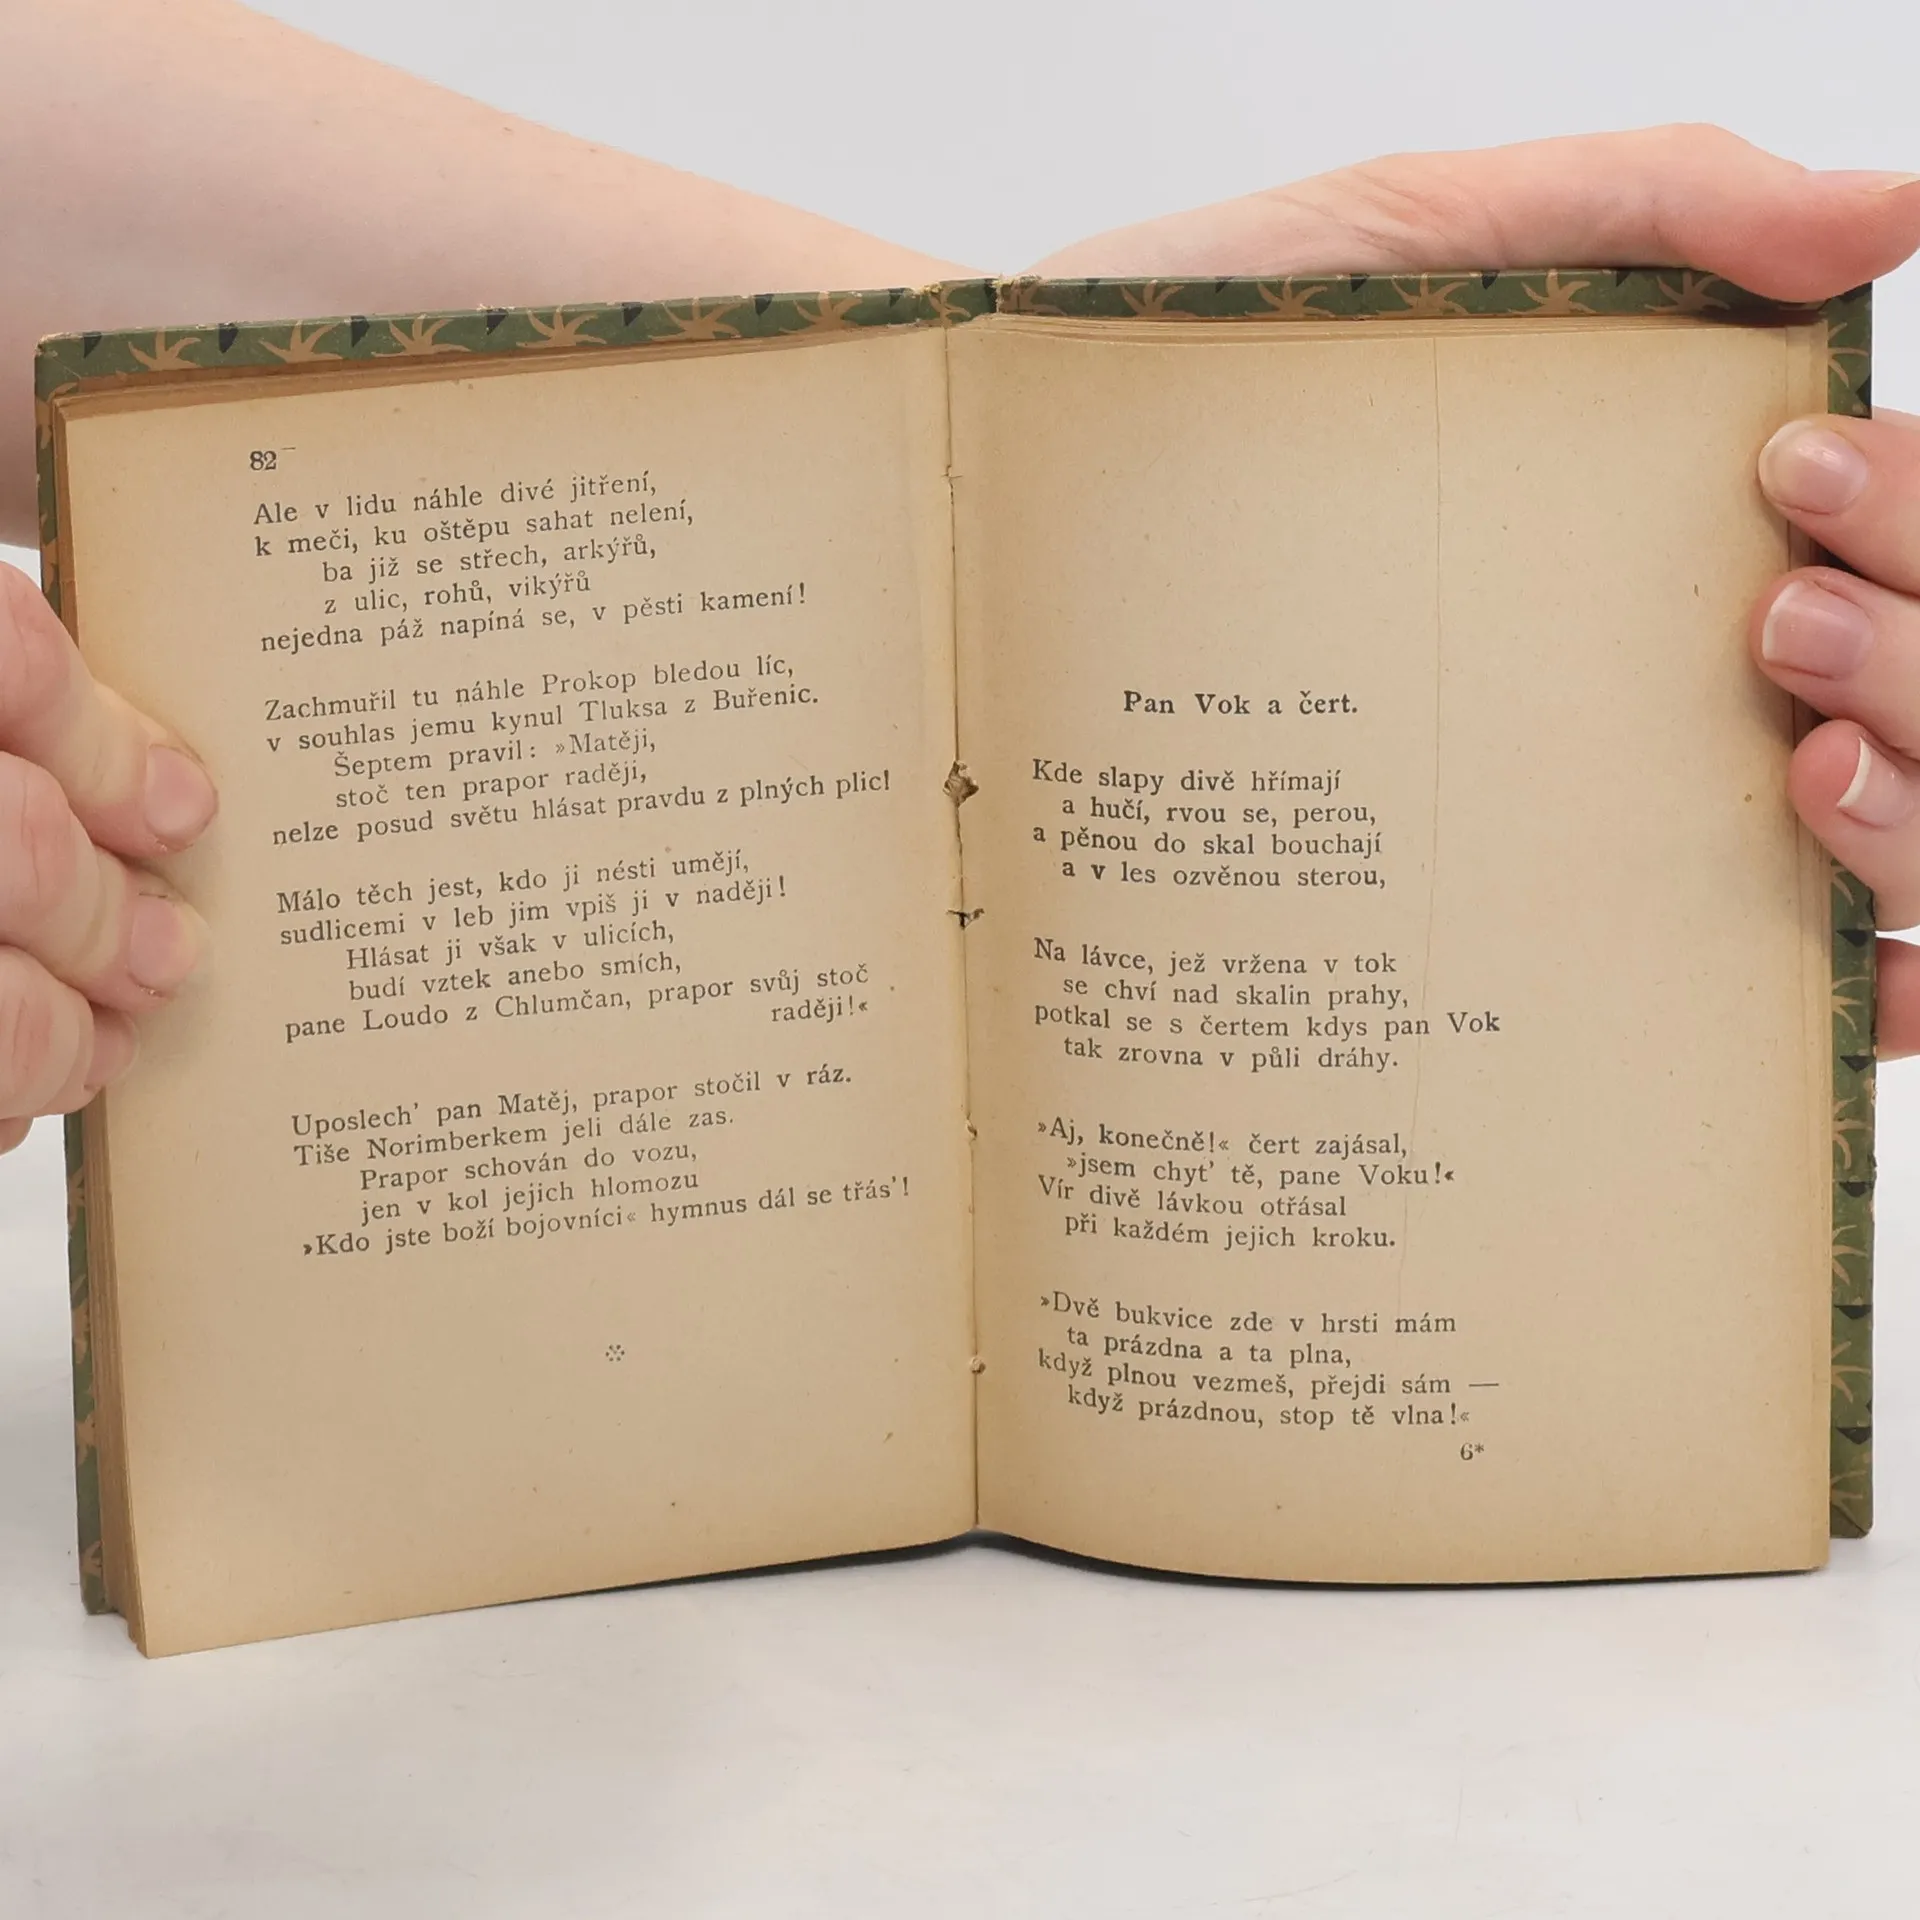 82
Ale v lidu náhle divé jitření,
k meči, ku oštěpu sahat nelení,
ba již se střech, arkýřů,
z ulic, rohů, vikýřů
nejedna páž napíná se, v pěsti kamení!
Zachmuřil tu náhle Prokop bledou líc,
v souhlas jemu kynul Tluksa z Buřenic.
Šeptem pravil: »Matěji,
stoč ten prapor raději,
nelze posud světu hlásat pravdu z plných plic!
Málo těch jest, kdo ji nésti umějí,
sudlicemi v leb jim vpiš ji v naději!
Hlásat ji však v ulicích,
budí vztek anebo smích,
pane Loudo z Chlumčan, prapor svůj stoč
raději!«
Uposlech' pan Matěj, prapor stočil v ráz.
Tiše Norimberkem jeli dále zas.
Prapor schován do vozu,
jen v kol jejich hlomozu
»Kdo jste boží bojovníci« hymnus dál se třás'!
Pan Vok a čert.
Kde slapy divě hřímají
a hučí, rvou se, perou,
a pěnou do skal bouchají
a v les ozvěnou sterou,
Na lávce, jež vržena v tok
se chví nad skalin prahy,
potkal se s čertem kdys pan Vok
tak zrovna v půli dráhy.
»Aj, konečně!« čert zajásal,
»jsem chyt' tě, pane Voku!«
Vír divě lávkou otřásal
při každém jejich kroku.
»Dvě bukvice zde v hrsti mám
ta prázdna a ta plna,
když plnou vezmeš, přejdi sám —
když prázdnou, stop tě vlna!«
6*